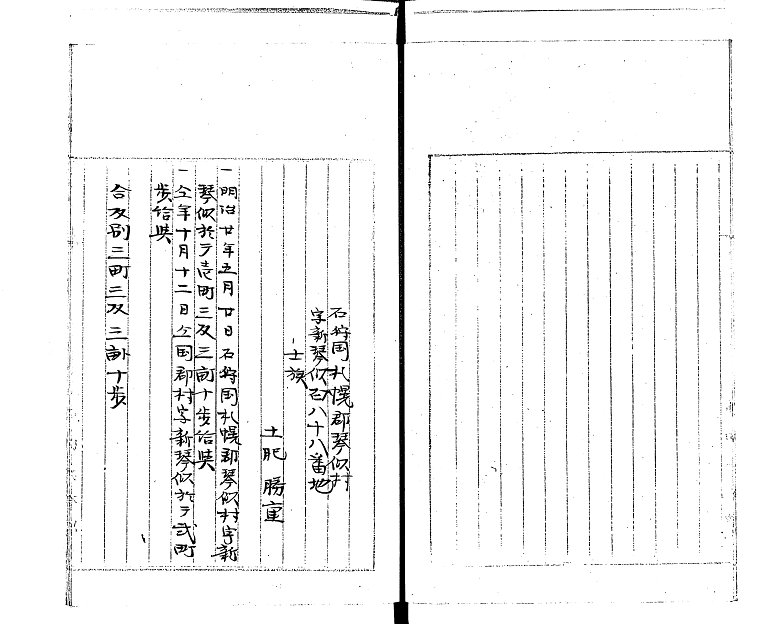 石狩国札幌郡琴似村
字新琴似百八十八番地
士族
土肥 勝重
一明治廿年五月廿日石狩国札幌郡琴似村字新
琴似於テ壱町三反三畝十歩給与
一仝年十月十二日仝国郡村字新琴似於テ弐町
歩給与
合反別三町三反三畝十歩